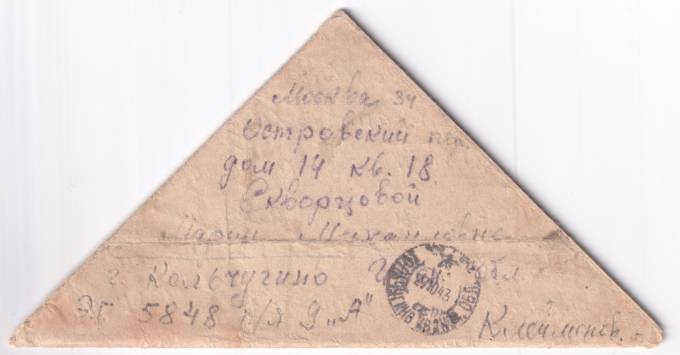 Москва 34
Островский пер.
дом 14 кв. 18
Скворцовой
Марии Михаиловне
г. Кольчугино обл
ЭГ 5848 п/я 9 „А“